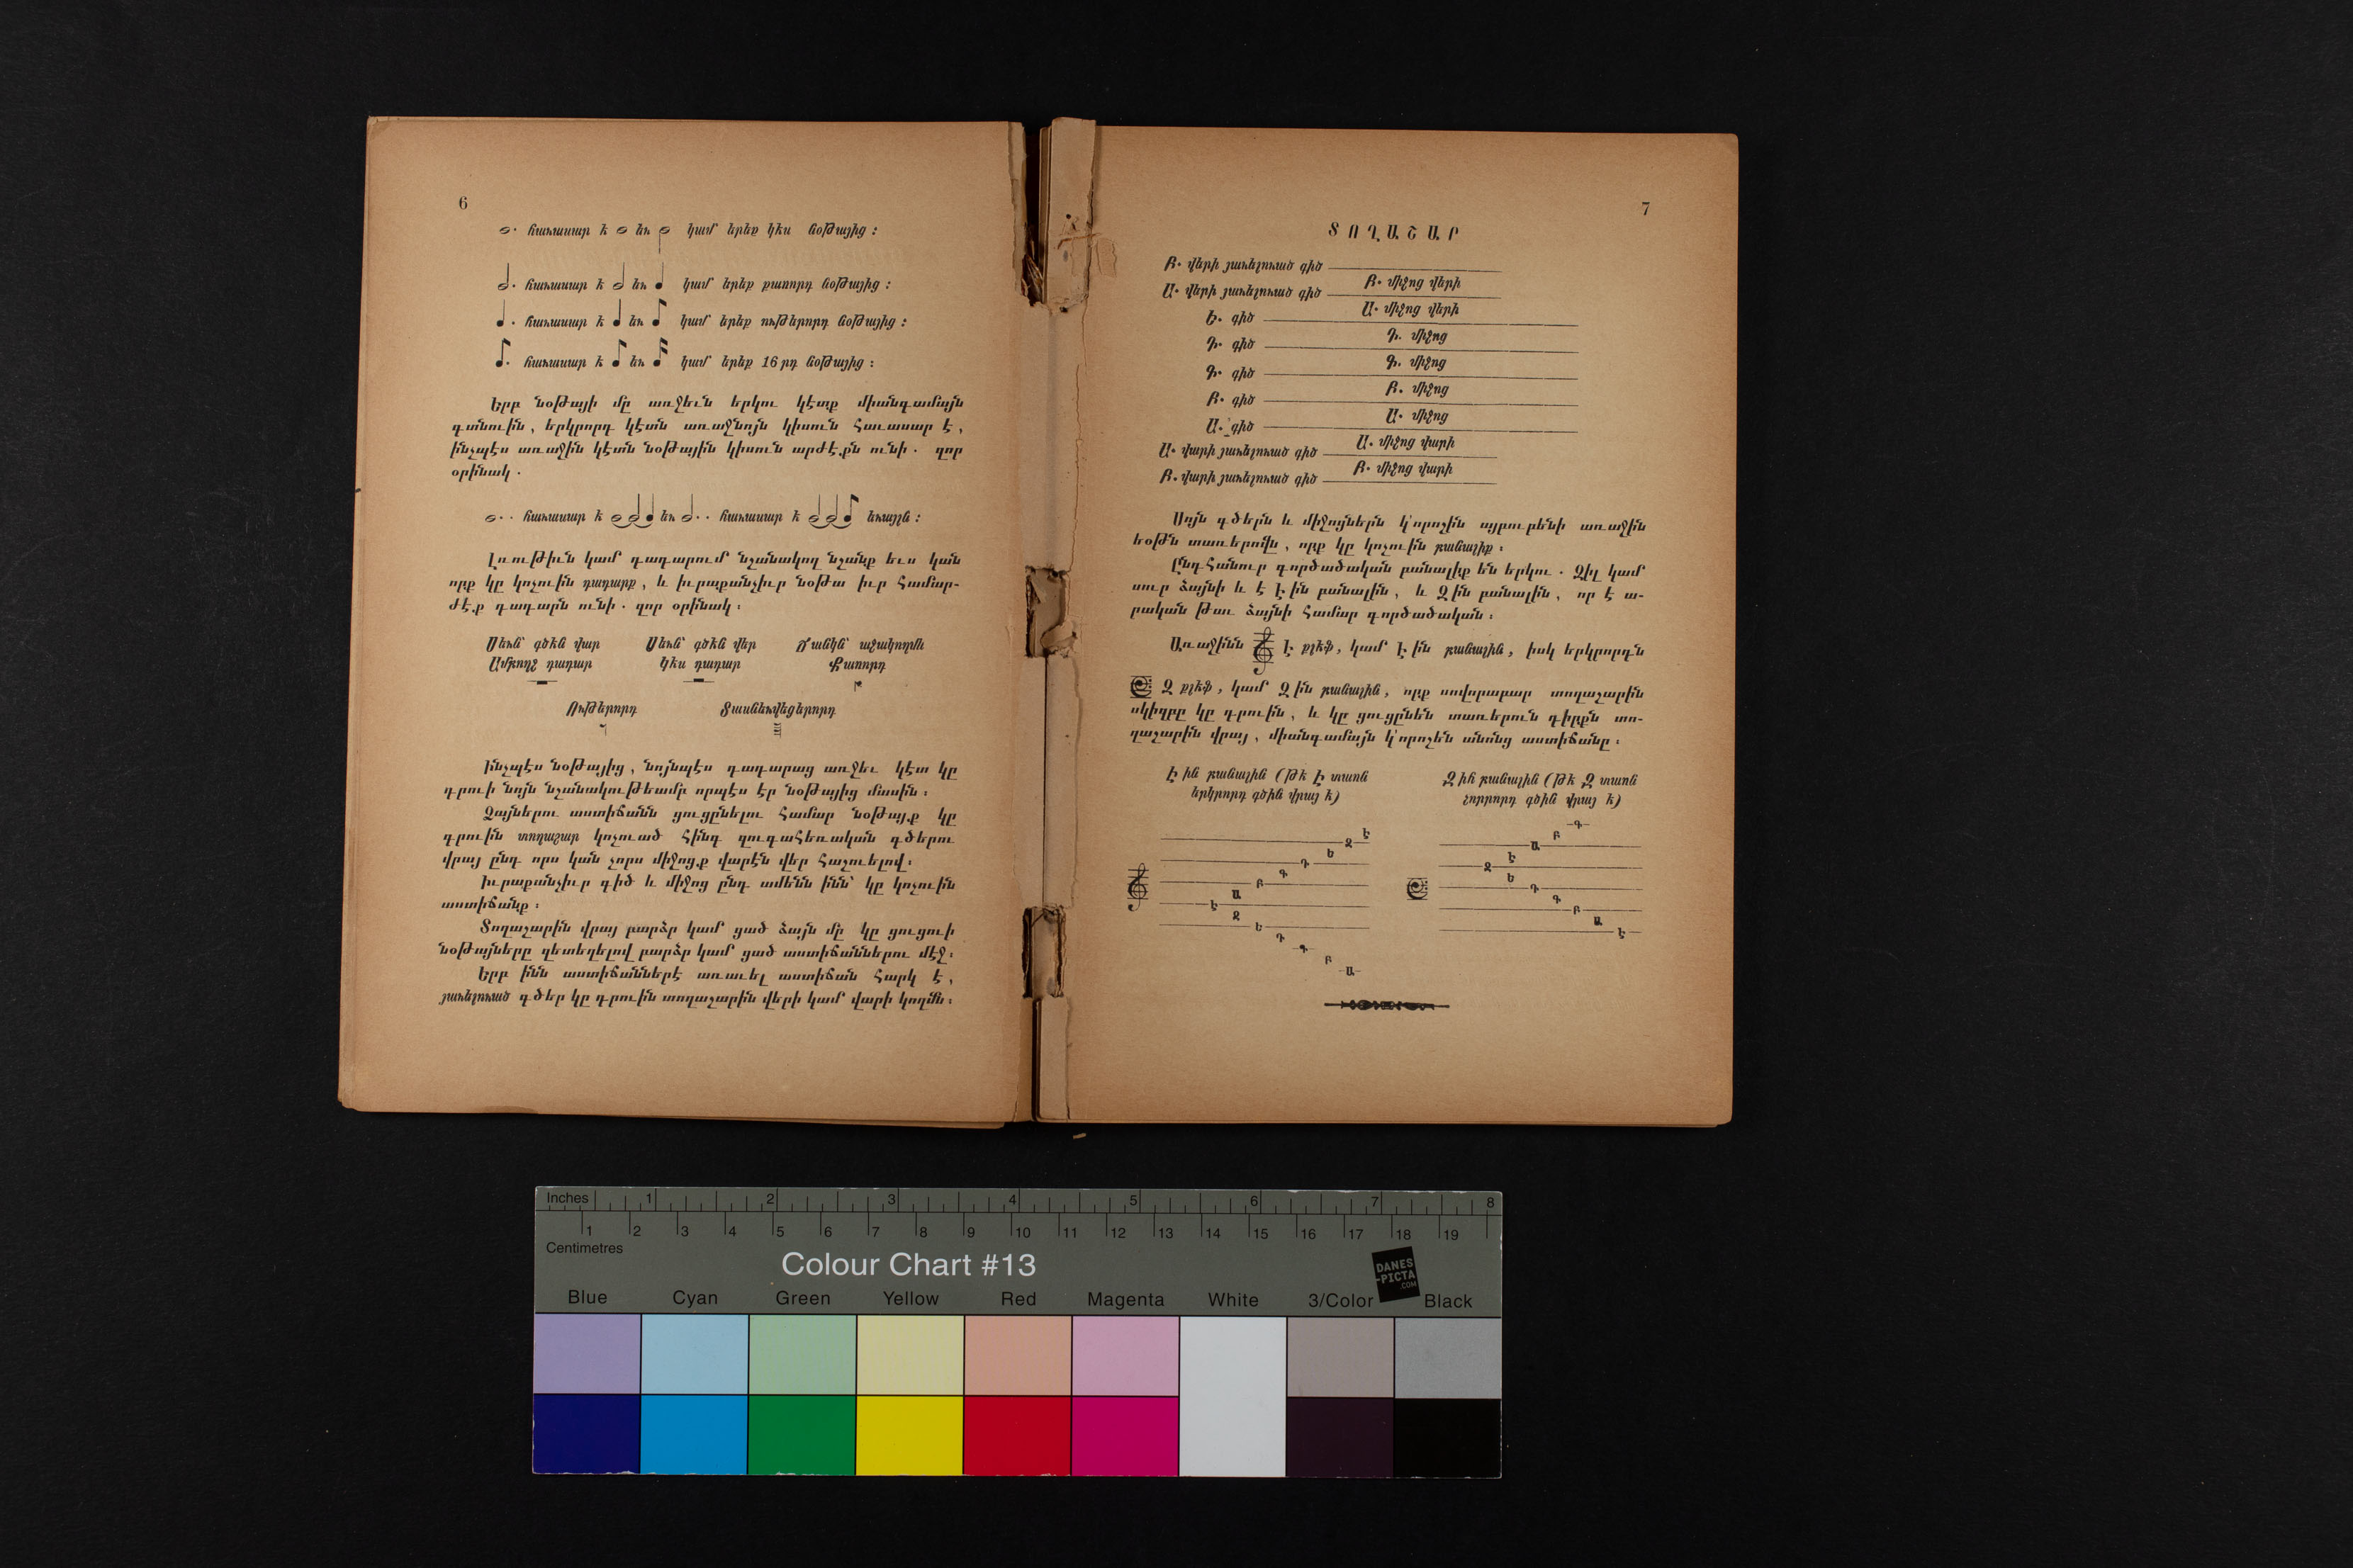 6
հաւասար է եւ կամ երեք կէս նօթայից ։
հաւասար է եւ կամ երեք քառորդ նօթայից ։
հաւասար է եւ կամ երեք ութերորդ նօթայից ։
հաւասար է եւ կամ երեք 16րդ նօթայից ։
Երբ նօթայի մը առջեւն երկու կէտք միանգամայն
գտնուին, երկրորդ կէտն առաջնոյն կիսուն հաւասար է,
ինչպէս առաջին կէտն նօթային կիսուն արժէքն ունի. զոր
օրինակ.
հաւասար է եւ հաւասար է եւայլն ։
Լռութիւն կամ դադարում նշանակող նշանք եւս կան
որք կը կոչուին դադարք, և իւրաքանչիւր նօթա իւր համար-
ժէք դադարն ունի. զոր օրինակ ։
Սեւն՝ գծէն վար Սեւն՝ գծէն վեր Ճանկն՝ աջակողմն
Ամբողջ դադար Կէս դադար Քառորդ
Ութերորդ Տասնեւվեցերորդ
Ինչպէս նօթայից, նոյնպէս դադարաց առջեւ կէտ կը
դրուի նոյն նշանակութեամբ որպէս էր նօթայից մասին ։
Ձայներու աստիճանն ցուցընելու համար նօթայք կը
դրուին տողաշար կոչուած հինգ զուգահեռական գծերու
վրայ ընդ որս կան չորս միջոցք վարէն վեր հաշուելով ։
Իւրաքանչիւր գիծ և միջոց ընդ ամենն ինն՝ կը կոչուին
աստիճանք ։
Տողաշարին վրայ բարձր կամ ցած ձայն մը կը ցուցուի
նօթայները զետեղելով բարձր կամ ցած աստիճաններու մէջ ։
Երբ ինն աստիճաններէ առաւել աստիճան հարկ է,
յաւելուած գծեր կը դրուին տողաշարին վերի կամ վարի կողմն ։
7
ՏՈՂԱՇԱՐ
Բ. վերի յաւելուած գիծ
Բ. միջոց վերի
Ա. վերի յաւելուած գիծ
Ա. միջոց վերի
Ե. գիծ
Դ. միջոց
Դ. գիծ
Գ. միջոց
Գ. գիծ
Բ. միջոց
Բ. գիծ
Ա. միջոց
Ա. գիծ
Ա. միջոց վարի
Ա. վարի յաւելուած գիծ
Բ. միջոց վարի
Բ. վարի յաւելուած գիծ
Սոյն գծերն և միջոցներն կ՚որոշին այբուբենի առաջին
եօթն տառերովն, որք կը կոչուին բանալիք ։
Ընդհանուր գործածական բանալիք են երկու. Զիլ կամ
սուր ձայնի և է Է ին բանալին, և Զ ին բանալին, որ է ա-
րական թաւ ձայնի համար գործածական ։
Առաջինն Է քլէֆ, կամ Է ին բանալին, իսկ երկրորդն
Զ քլէֆ, կամ Զ ին բանալին, որք սովորաբար տողաշարին
սկիզբը կը դրուին, և կը ցուցընեն տառերուն դիրքն տո-
ղաշարին վրայ, միանգամայն կ՚որոշեն անոնց աստիճանը ։
Է ին բանալին (թէ Է տառն
երկրորդ գծին վրայ է)
Զ ին բանալին (թէ Զ տառն
չորրորդ գծին վրայ է)
Է Զ Ե Դ Գ Բ Ա Է Զ Ե Դ Գ Բ Ա
Գ Բ Ա Է Զ Ե Դ Գ Բ Ա Է
Inches 1 2 3 4 5 6 7 8
1 2 3 4 5 6 7 8 9 10 11 12 13 14 15 16 17 18 19
Centimetres
Colour Chart #13
DANES
-PICTA
.COM
Blue Cyan Green Yellow Red Magenta White 3/Color Black